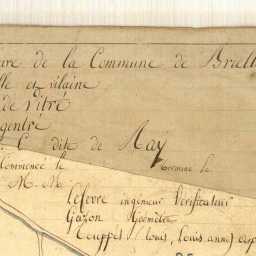 de la Commune de Briell
et vilaine
de vitré
gentré
C dite de Ray
Commencé le Terminé le
M. M.
Lefevre ingenieur Vérificateur
Gazon Géomètre
Touppel (Louis, Louis anne)